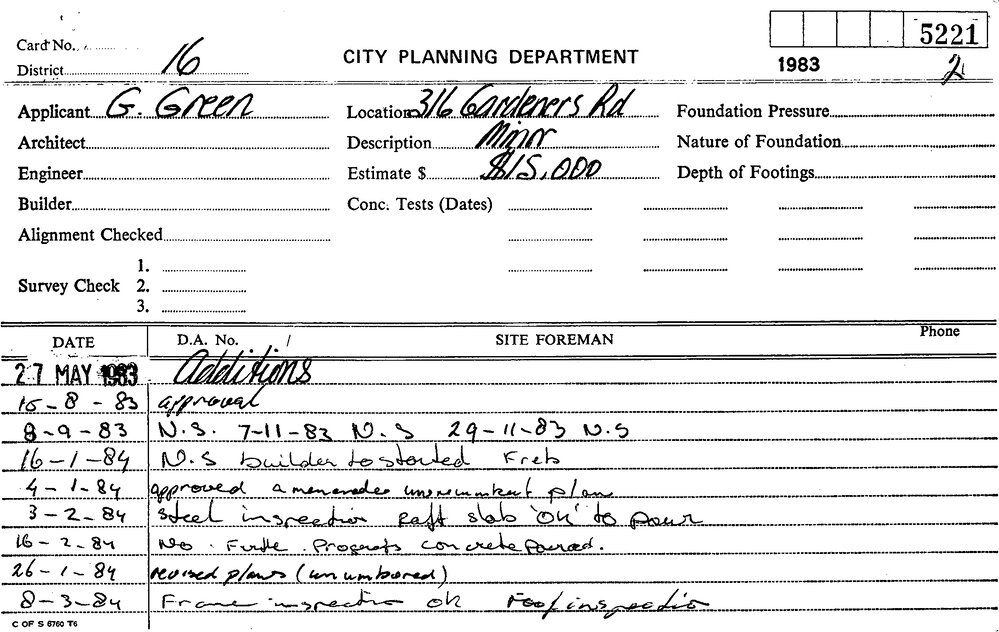 5221
Card No.
District 16
CITY PLANNING DEPARTMENT
1983
2
Applicant G. Green
Location 316 Gardeners Rd
Foundation Pressure
Architect
Description Minr
Nature of Foundation
Engineer
Estimate $ $15,000
Depth of Footings
Builder
Conc. Tests (Dates)
Alignment Checked
Survey Check
1.
2.
3.
DATE D.A. No. / SITE FOREMAN Phone
27 MAY 1983 Additions
15-8-83 approval
8-9-83 N.S. 7-11-83 N.S 29-11-83 N.S
16-1-84 N.S builder to started
4-1-84 approved plan
3-2-84 Steel inspection raft slab 'OK' to pour
16-2-84 No. Progress concrete poured.
26-1-84 revised plans (unumbored)
8-3-84 Frame inspection ok Roof inspection
C OF S 6760 T6